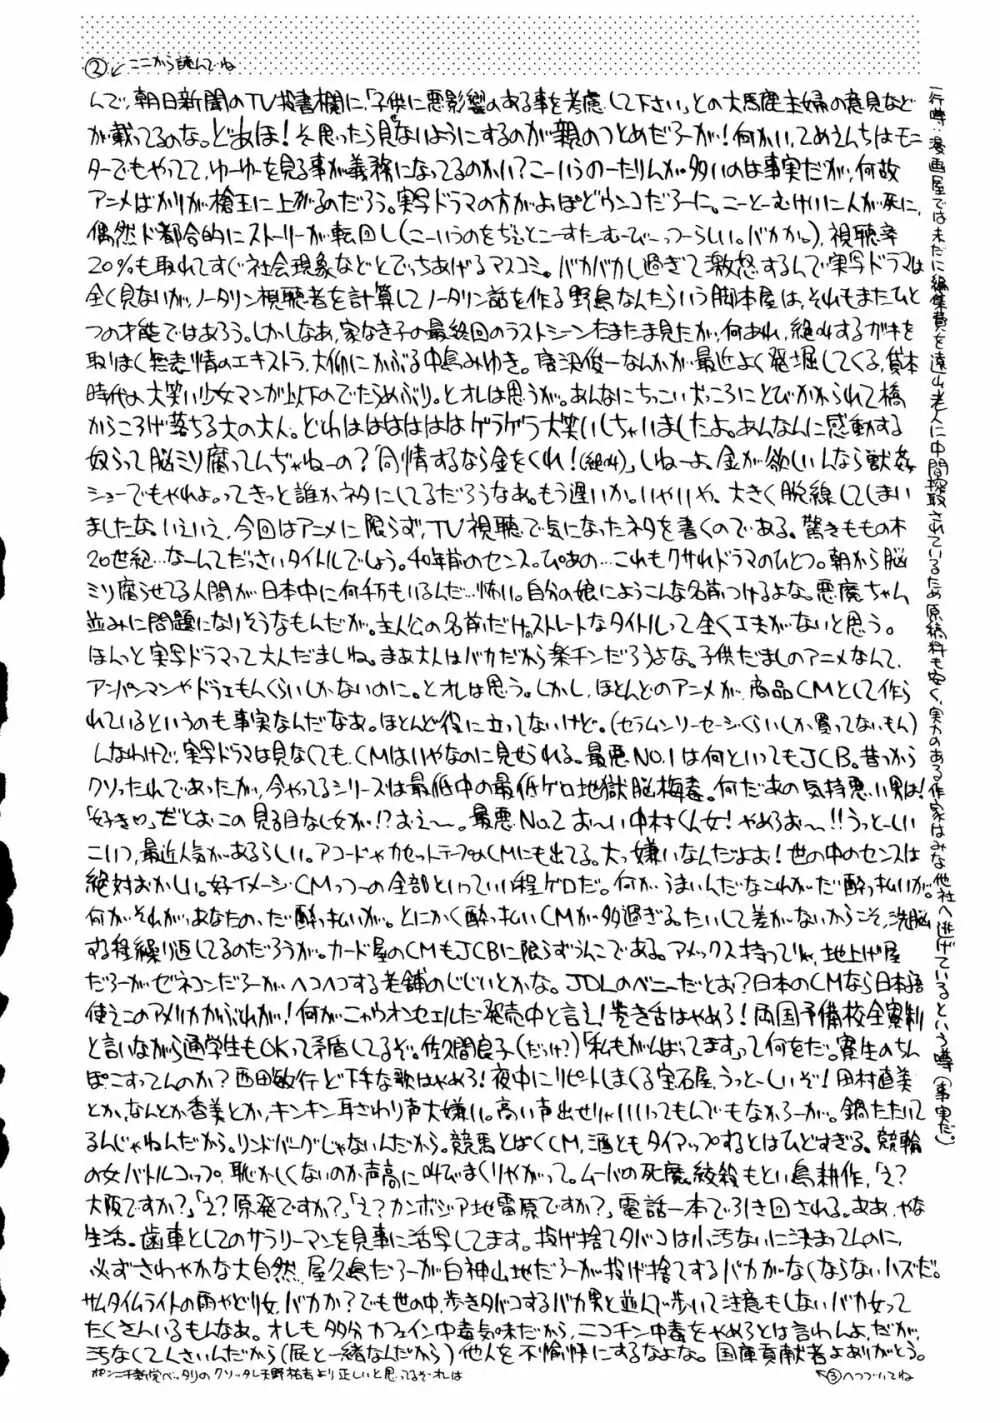 ②↙ここから読んでね
んで、朝日新聞のTV投書欄に、「子供に悪影響のある事を考慮して下さい」との大馬鹿主婦の意見など
が載ってるのな。どあほ!そ思ったら見ないようにするのが親のつとめだろーが!何かい、てめえんちはモニ
ターでもやってて、ゆーゆーを見る事が義務になってるのかい?こーいうのーたりんが多いのは事実だが、何故
アニメばかりが槍玉に上がるのだろう。実写ドラマの方がよっぽどウンコだろーに。こーとーむけいに人が死に、
偶然ド都合的にストーリーが転回し(こーいうのをぢぇとこーすたーむーびーっつーらしい。バカか。)、視聴率
20%も取れてすぐ社会現象などとでっちあげるマスコミ。バカバカし過ぎて激怒するんで実写ドラマは
全く見ないが、ノータリン視聴者を計算してノータリン話を作る野島なんたらいう脚本屋は、それもまたひと
つの才能ではあろう。しかしなあ、家なき子の最終回のラストシーンたまたま見たが、何あれ、絶叫するガキを
取りまく無表情のエキストラ、大仰にかぶる中島みゆき。唐沢俊一なんかが最近よく発掘してくる、貸本
時代の大笑い少女マンガ以下のでたらめぶり。とオレは思うが。あんなにちっこい犬っころにとびかかられて橋
からころげ落ちる大の大人。どわはははははゲラゲラ大笑いしちゃいましたよ。あんなんに感動する
奴らって脳ミソ腐ってんぢゃねーの?「同情するなら金をくれ!(絶叫)」しねーよ。金が欲しいんなら獣姦
ショーでもやれよ。ってきっと誰かネタにしてるだろうなあ。もう遅いか。いやいや、大きく脱線してしまい
ましたな。いえいえ、今回はアニメに限らず、TV視聴で気になったネタを書くのである。驚きももの木
20世紀…なーんてだっさいタイトルでしょう。40年前のセンス。ぴあの…これもクサれドラマのひとつ。朝から脳
ミソ腐らせてる人間が日本中に何千万もいるんだ…怖い。自分の娘にようこんな名前つけるよな。悪魔ちゃん
並みに問題になりそうなもんだが。主人公の名前だけ。のストレートなタイトルって全く工夫がないと思う。
ほんっと実写ドラマって大人だましね。まあ大人はバカだから楽チンだろうよな。子供だましのアニメなんて、
アンパンマンやドラえもんくらいしかないのに。とオレは思う。しかし、ほとんどのアニメが、商品CMとして作ら
れているというのも事実なんだなあ。ほとんど役に立ってないけど。(セラムンソーセージくらいしか買ってないもん)
しなわけで、実写ドラマは見なくても、CMはいやなのに見せられる。最悪NO.1は何といってもJCB。昔っから
クソったれであったが、今やってるシリーズは最低中の最低ゲロ地獄脳梅毒。何だあの気持悪い男は!
「好き♡」だとおこの見る目なし女が!?おえ〜。最悪No.2お〜い中村くん女!やめろお〜!!うっとーしい
こいつ、最近人気があるらしい。アコードやカセットテープのCMにも出てる。大っ嫌いなんだよお!世の中のセンスは
絶対おかしい。好イメージCMっつーの全部といっていい程ゲロだ。何がうまいんだなこれがだ酔っ払いが。
何がそれが、あなたの、だ酔っ払いが。とにかく酔っ払いCMが多過ぎる。たいして差がないからこそ、洗脳
する程繰り返してるのだろうが。カード屋のCMもJCBに限らずうんこである。アメックス持ってりゃ、地上げ屋
だろーがゼネコンだろーがヘコヘコする老舗のじじいとかな。JDLのベニーだとお?日本のCMなら日本語
使えこのアメリカかぶれが!何がニャウオンセェルだ発売中と言え!巻き舌はやめろ!両国予備校全寮制
と言いながら通学生もOKって矛盾してるぞ。佐久間良子(だっけ?)「私もがんばってます」って何をだ。寮生のちん
ぽこすってんのか?西田敏行ど下手な歌はやめろ!夜中にリピートしまくる宝石屋、うっとーしいぞ!田村直美
とか、なんとか香美とか、キンキン耳ざわり声大嫌い。高い声出せりゃいいってもんでもなかろーが。鍋たたいて
るんじゃねんだから。リンドバーグじゃないんだから。競馬とばくCM、酒ともタイアップするとはひどすぎる。競輪
の女バトルコップ。恥かしくないのか声高に叫びまくりやがって。ムーバの死魔絞殺もとい島耕作、「え?
大阪ですか?」「え?原発ですか?」「え?カンボジア地雷原ですか?」電話一本で引き回される。ああ、やな
生活。歯車としてのサラリーマンを見事に活写してます。投げ捨てタバコは小汚ないに決まってんのに、
必ずさわやかな大自然。屋久島だろーが白神山地だろーが投げ捨てするバカがなくならないハズだ。
サムタイムライトの雨やどり女、バカか?でも世の中、歩きタバコするバカ男と並んで歩いて注意もしないバカ女って
たくさんいるもんなあ。オレも多分カフェイン中毒気味だから、ニコチン中毒をやめろとは言わんよ。だが、
汚なくてくさいんだから(屁と一緒なんだから)他人を不愉快にするなよな。国庫貢献者よありがとう。
↖③へつづいてね
一行噂:漫画屋では未だに編集費を遠山老人に中間搾取されているため原稿料も安く、実力のある作家はみな他社へ逃げているという噂(事実だ。)